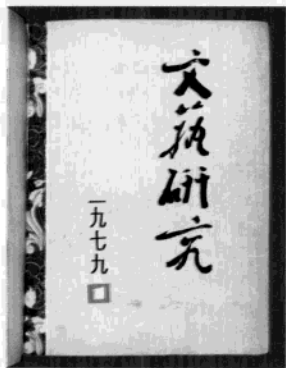 文艺研究
一九七九